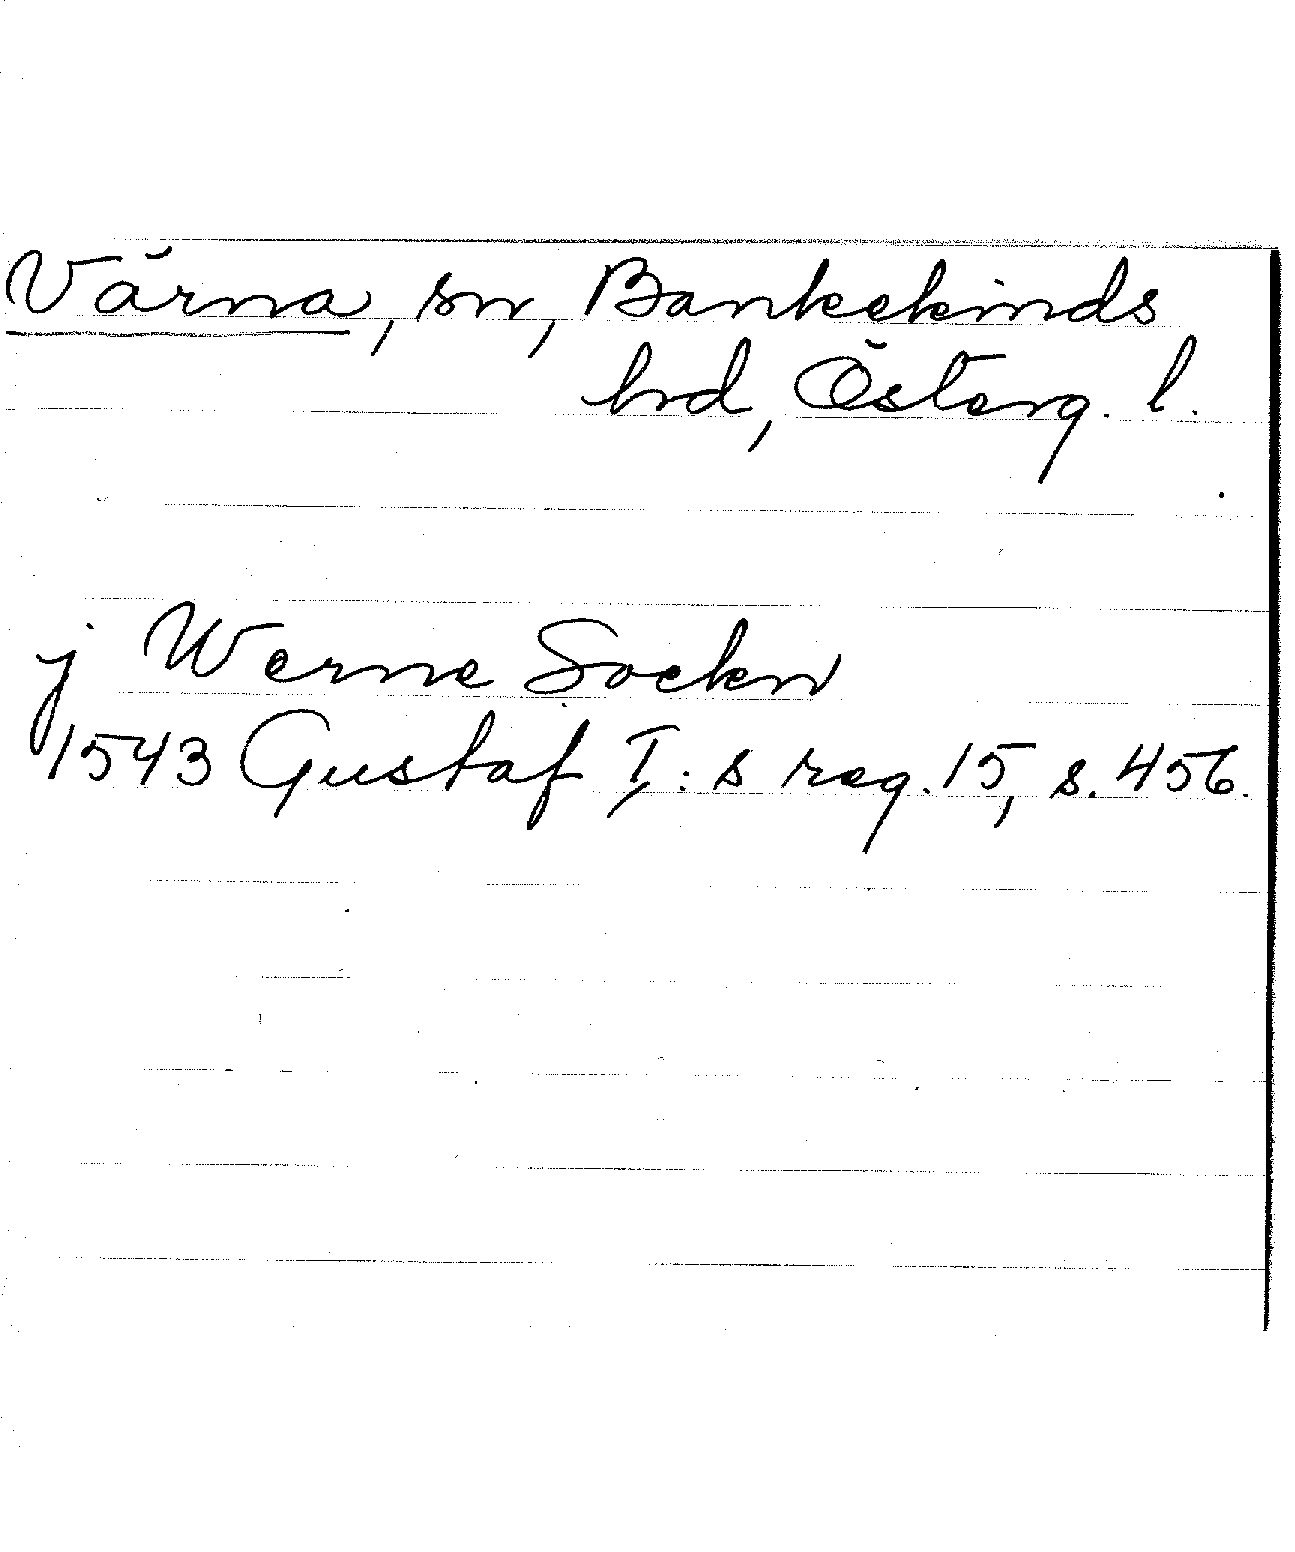 Värna, sn, Bankekinds
hrd, Österg. l.
j Werne Sockn
1543 Gustaf I:s reg. 15, s. 456.